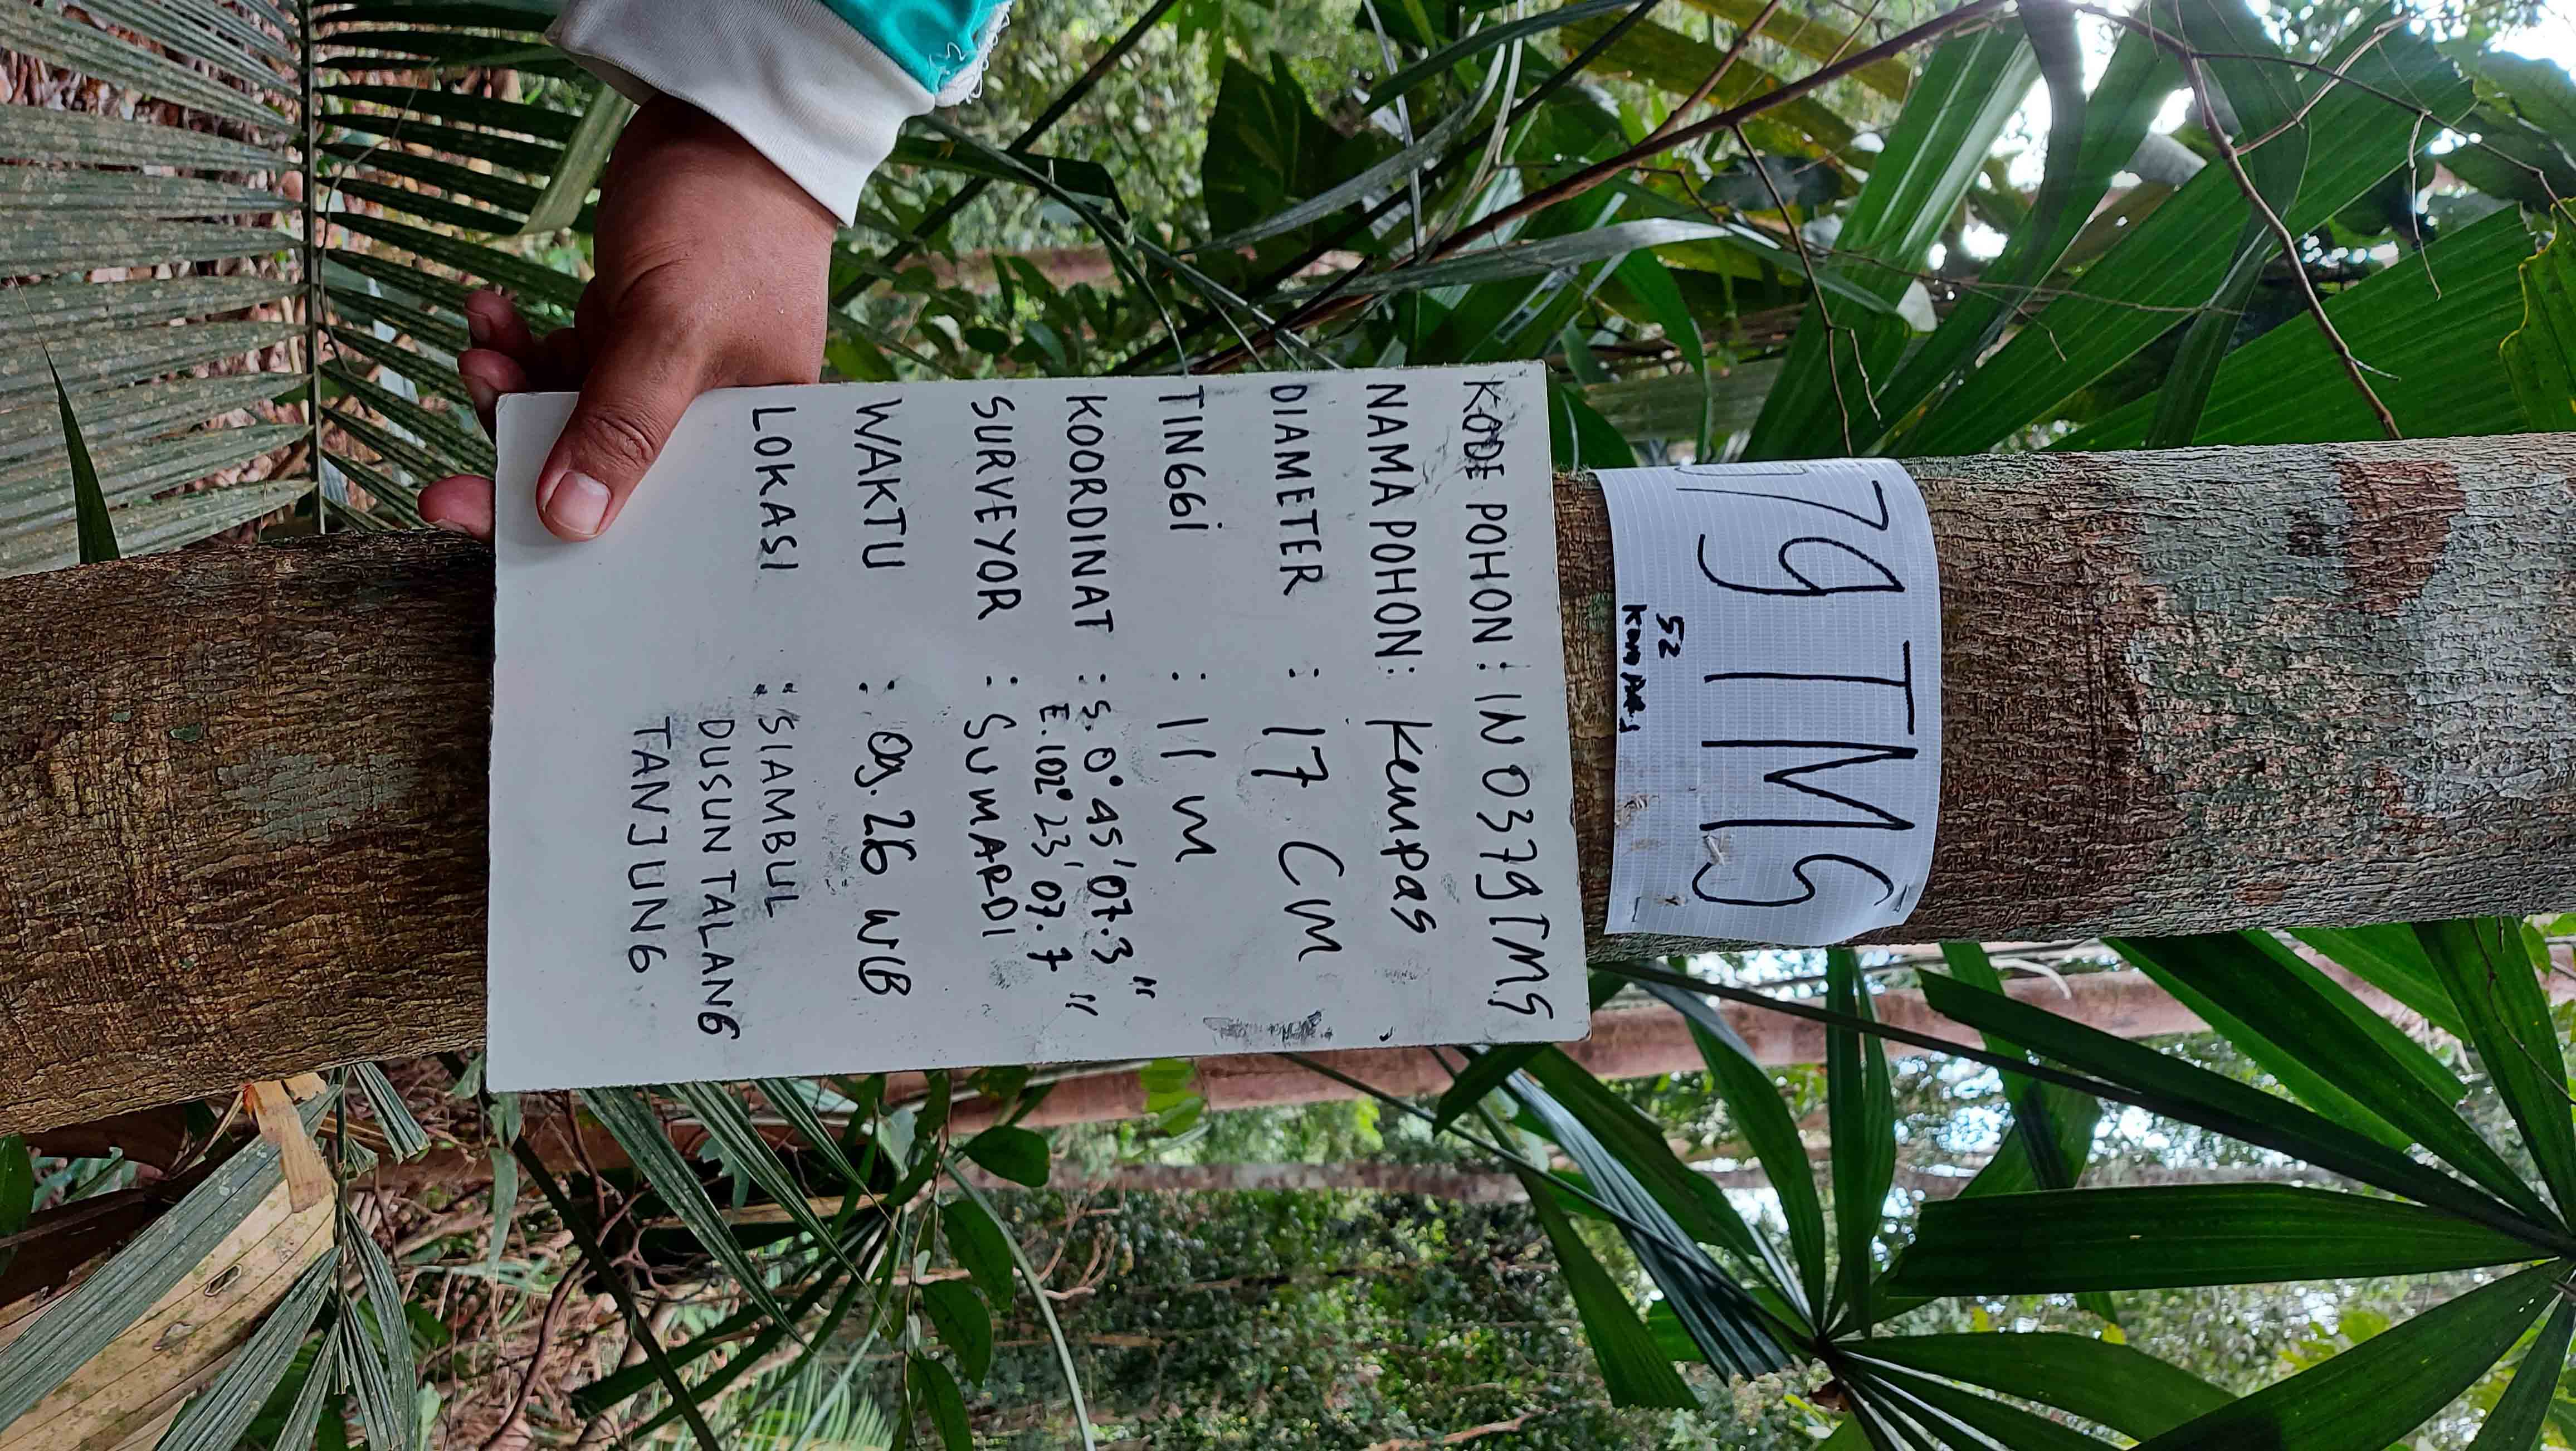 KODE POHON : IN 0379TMS
NAMA POHON : Kempas
DIAMETER : 17 CM
TINGGi : 11 m
KOORDINAT : S. 0° 45' 07.3"
E. 102° 23' 07.7"
SURVEYOR : SUMARDI
WAKTU : 09.26 WIB
LOKASI : SIAMBUL
DUSUN TALANG
TANJUNG
79 TMS
52